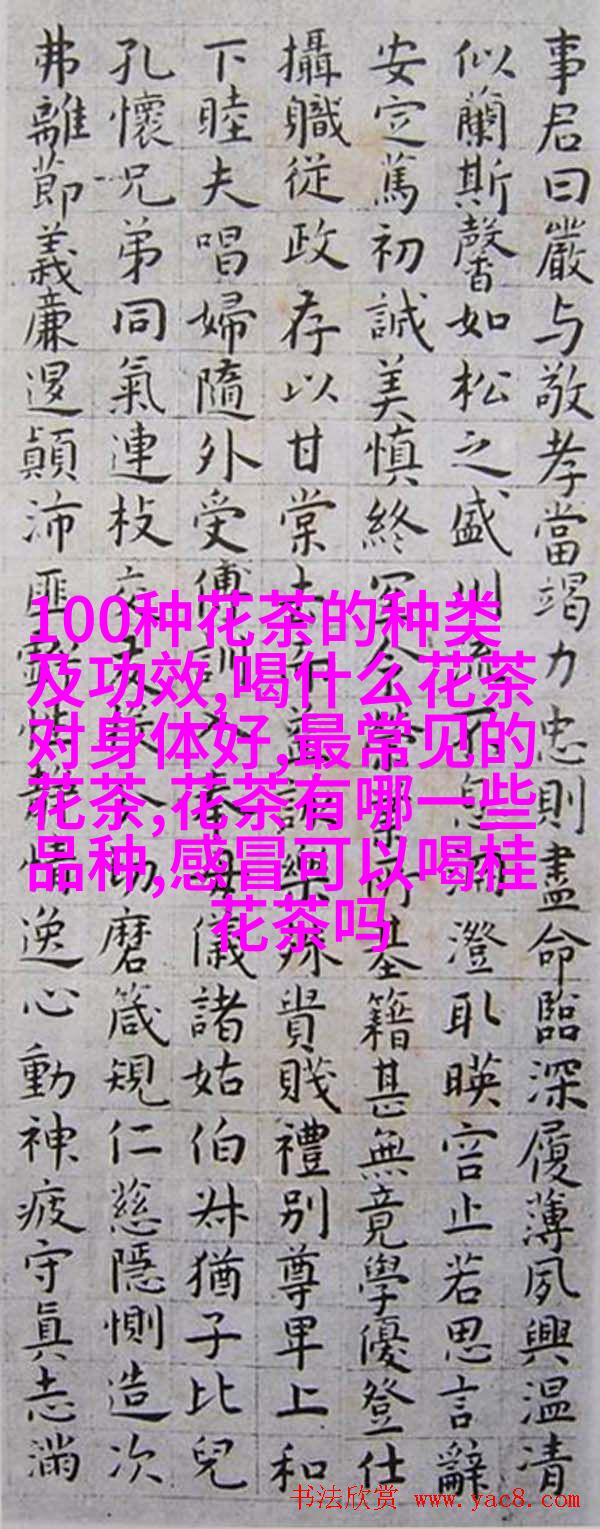 事君曰嚴与敬孝當竭力忠則盡命臨深履薄夙興温清
似蘭斯馨如松之盛川流不息淵澄取暎容止若思言辭
安定篤初誠美慎終宜令榮業所基籍甚無竟學優登仕
攝職從政存以甘棠去而益詠樂殊貴賤禮別尊卑上和
下睦夫唱婦隨外受傅訓入奉母儀諸姑伯叔猶子比兒
孔懷兄弟同氣連枝交友投分切磨箴規仁慈隱惻造次
弗離節義廉退顛沛匪虧性静情逸心動神疲守真志滿
100种花茶的种类
及功效,喝什么花茶
对身体好,最常见的
花茶,花茶有哪一些
品种,感冒可以喝桂
花茶吗
书法欣赏 www.yac8.com